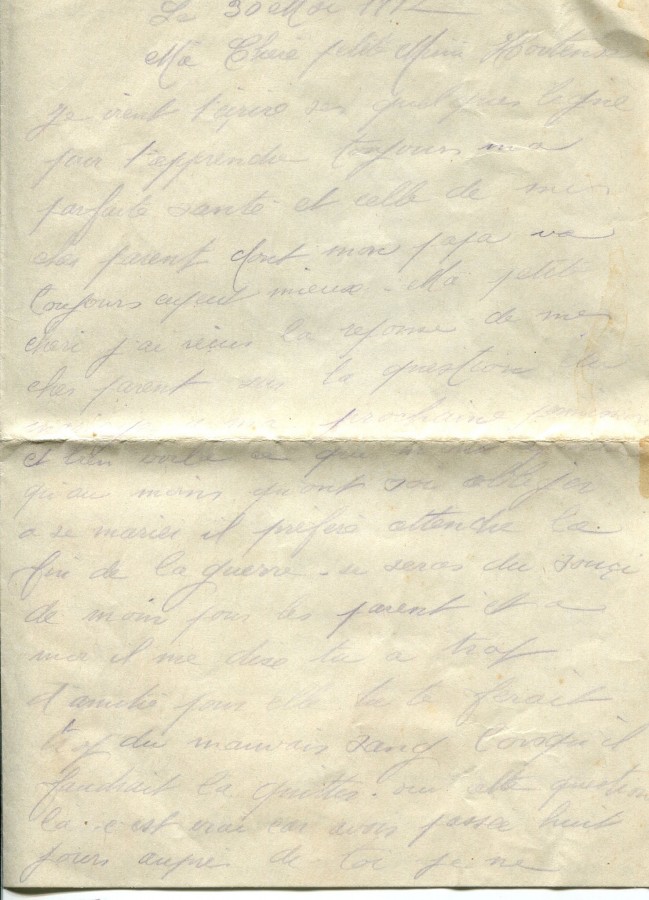 Le 30 Mai 1917
Ma Cherie petite Mimi Hortense
Je vient t'ecrire ses quelques ligne
pour t'apprendre toujours ma
parfaite santé et celle de mes
cher parent dont mon papa va
toujours mieux. Ma petite
cheri j'ai reçus la reponse de mes
cher parent sur la question
prochaine permission
et bien voila ce que
qu'au moins qu'ont soie obliger
a se marier il prefere attendre la
fin de la guerre. se seras du souçi
de moin pour les parent et a
moi il me dise tu a trop
d'amitie pour elle tu te ferait
trop du mauvais sang lorsqu'il
faudrait la quitter. sur cette question
la c'est vrai car avoir passer huit
jours aupre de toi je ne